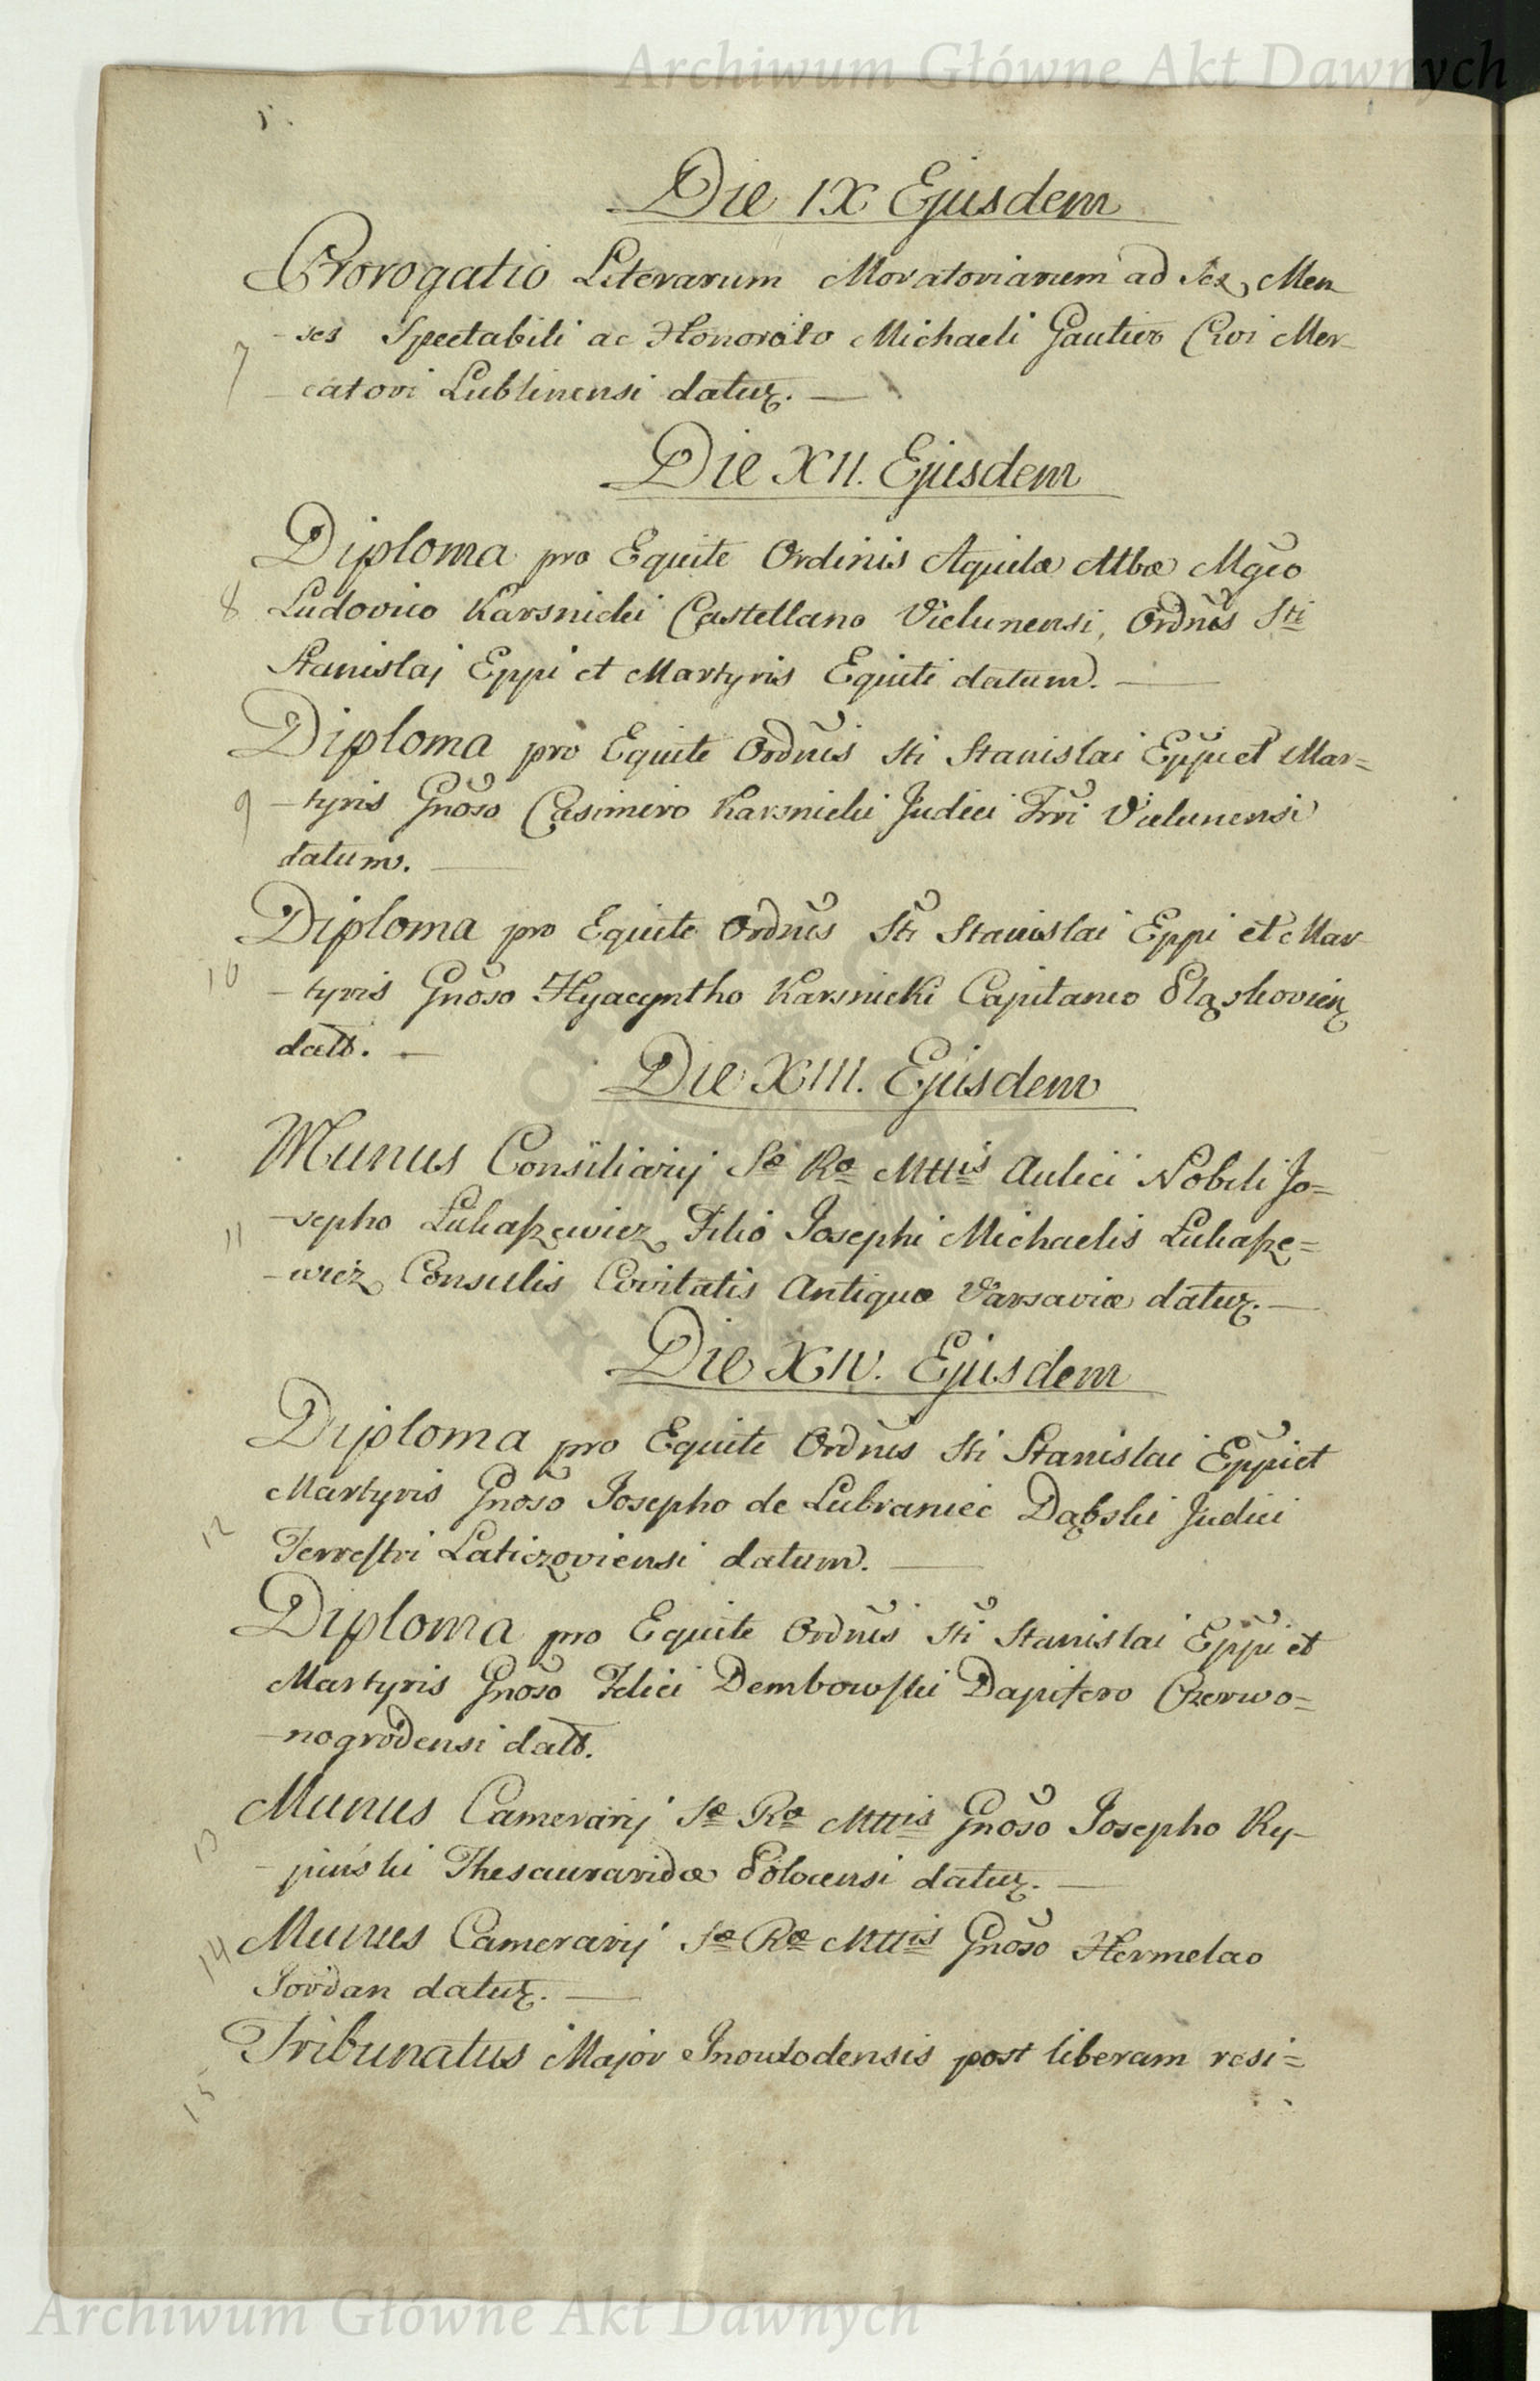 Archiwum Główne Akt Dawnych
5.
Die IX Ejusdem
Prorogatio Literarum Moratoriarum ad Sex Men
7 -ses Spectabili ac Honorato Michaeli Gautier Civi Mer-
-catori Lublinensi datur. —
Die XII. Ejusdem
Diploma pro Equite Ordinis Aquilæ Albæ Mgco
8 Ludovico Karsnicki Castellano Vielunensi, Ordnis Sti
Stanislaj Eppi et Martyris Equiti datum. —
Diploma pro Equite Ordnis Sti Stanislai Eppi et Mar=
9 -tyris Gnoso Casimiro Karsnicki Judici Trri Vielunensi
datum. —
Diploma pro Equite Ordnis Sti Stanislai Eppi et Mar-
10 -tyris Gnoso Hyacyntho Karsnicki Capitaneo
datt. —
Die XIII. Ejusdem
Munus Consiliarij Sæ Ræ Mttis Aulici Nobili Jo=
11 -sepho Lukaszewicz Filio Josephi Michaelis Lukasze=
-wicz Consulis Civitatis Antiquæ Varsaviæ datur. —
Die XIV. Ejusdem
Diploma pro Equite Ordnis Sti Stanislai Eppi et
12 Martyris Gnoso Josepho de Lubraniec Dąbski Judici
Terrestri Laticzoviensi datum. —
Diploma pro Equite Ordnis Sti Stanislai Eppi et
Martyris Gnoso Felici Dembowski Dapifero Czerwo=
-nogrodensi datt.
13 Munus Camerarij Sæ Ræ Mttis Gnoso Josepho Ry-
-pinski Thesauraridæ Polocensi datur. —
14 Munus Camerarij Sæ Ræ Mttis Gnoso Hermelao
Jordan datur. —
15 Tribunatus Major Inowlodensis post liberam resi=
Archiwum Główne Akt Dawnych